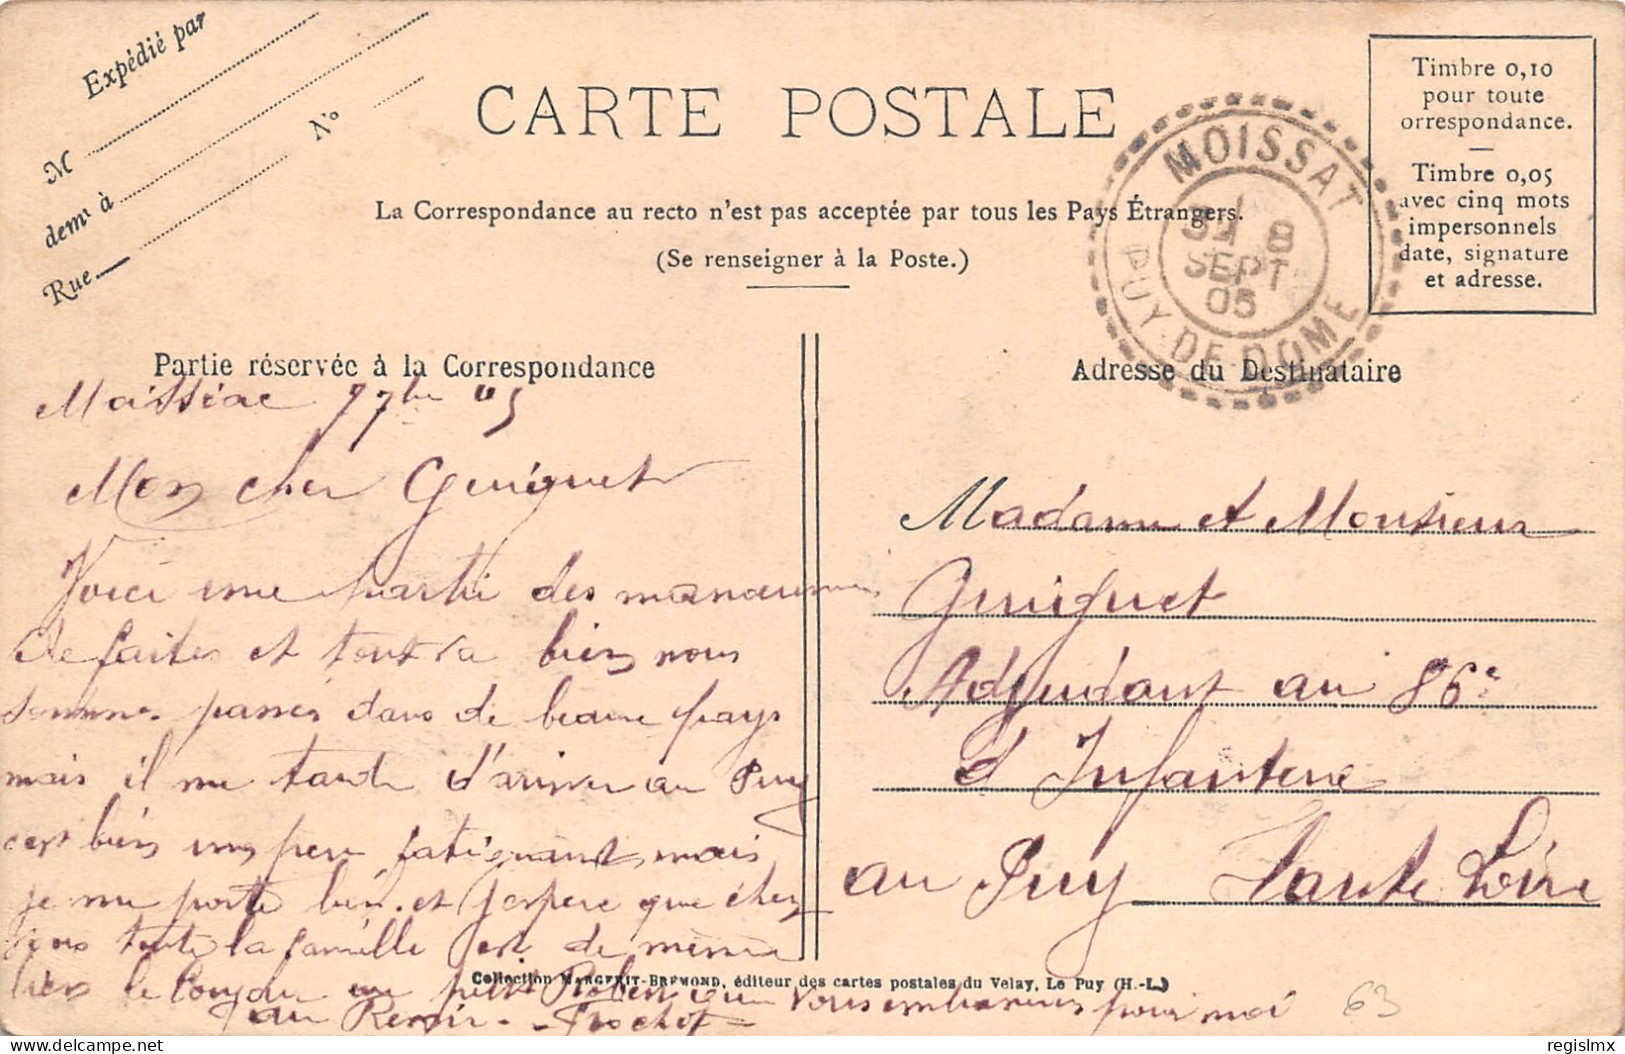 Expédié par
M
demt à
Rue
No
CARTE POSTALE
La Correspondance au recto n'est pas acceptée par tous les Pays Étrangers.
(Se renseigner à la Poste.)
Timbre 0,10
pour toute
orrespondance.
Timbre 0,05
avec cinq mots
impersonnels
date, signature
et adresse.
MOISSAT
8
SEPT
05
PUY-DE-DOME
Partie réservée à la Correspondance
Adresse du Destinataire
7bre 05
Mon cher Guiguet
Voici une partie des manoeuvres
de faites et tout va bien nous
sommes passés dans de beaux pays
mais il me tarde d'arriver au Puy
c'est bien un peu fatiguant mais
je me porte bien et j'espere que chez
vous toute la famille est de même
bien le bonjour au petit Robert que vous embrasserez pour moi
au Revoir - Prochot -
Madame et Monsieur
Guiguet
Adjudant au 86e
d'Infanterie
au Puy Haute Loire
Collection MARGERIT-BREMOND, éditeur des cartes postales du Velay, Le Puy (H.-L.)
63
regislmx
delcampe.net